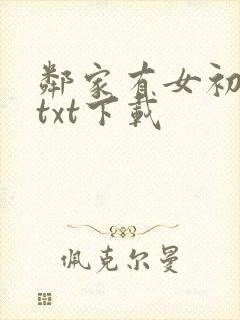 鄰家有女初
txt下載
佩克尔曼